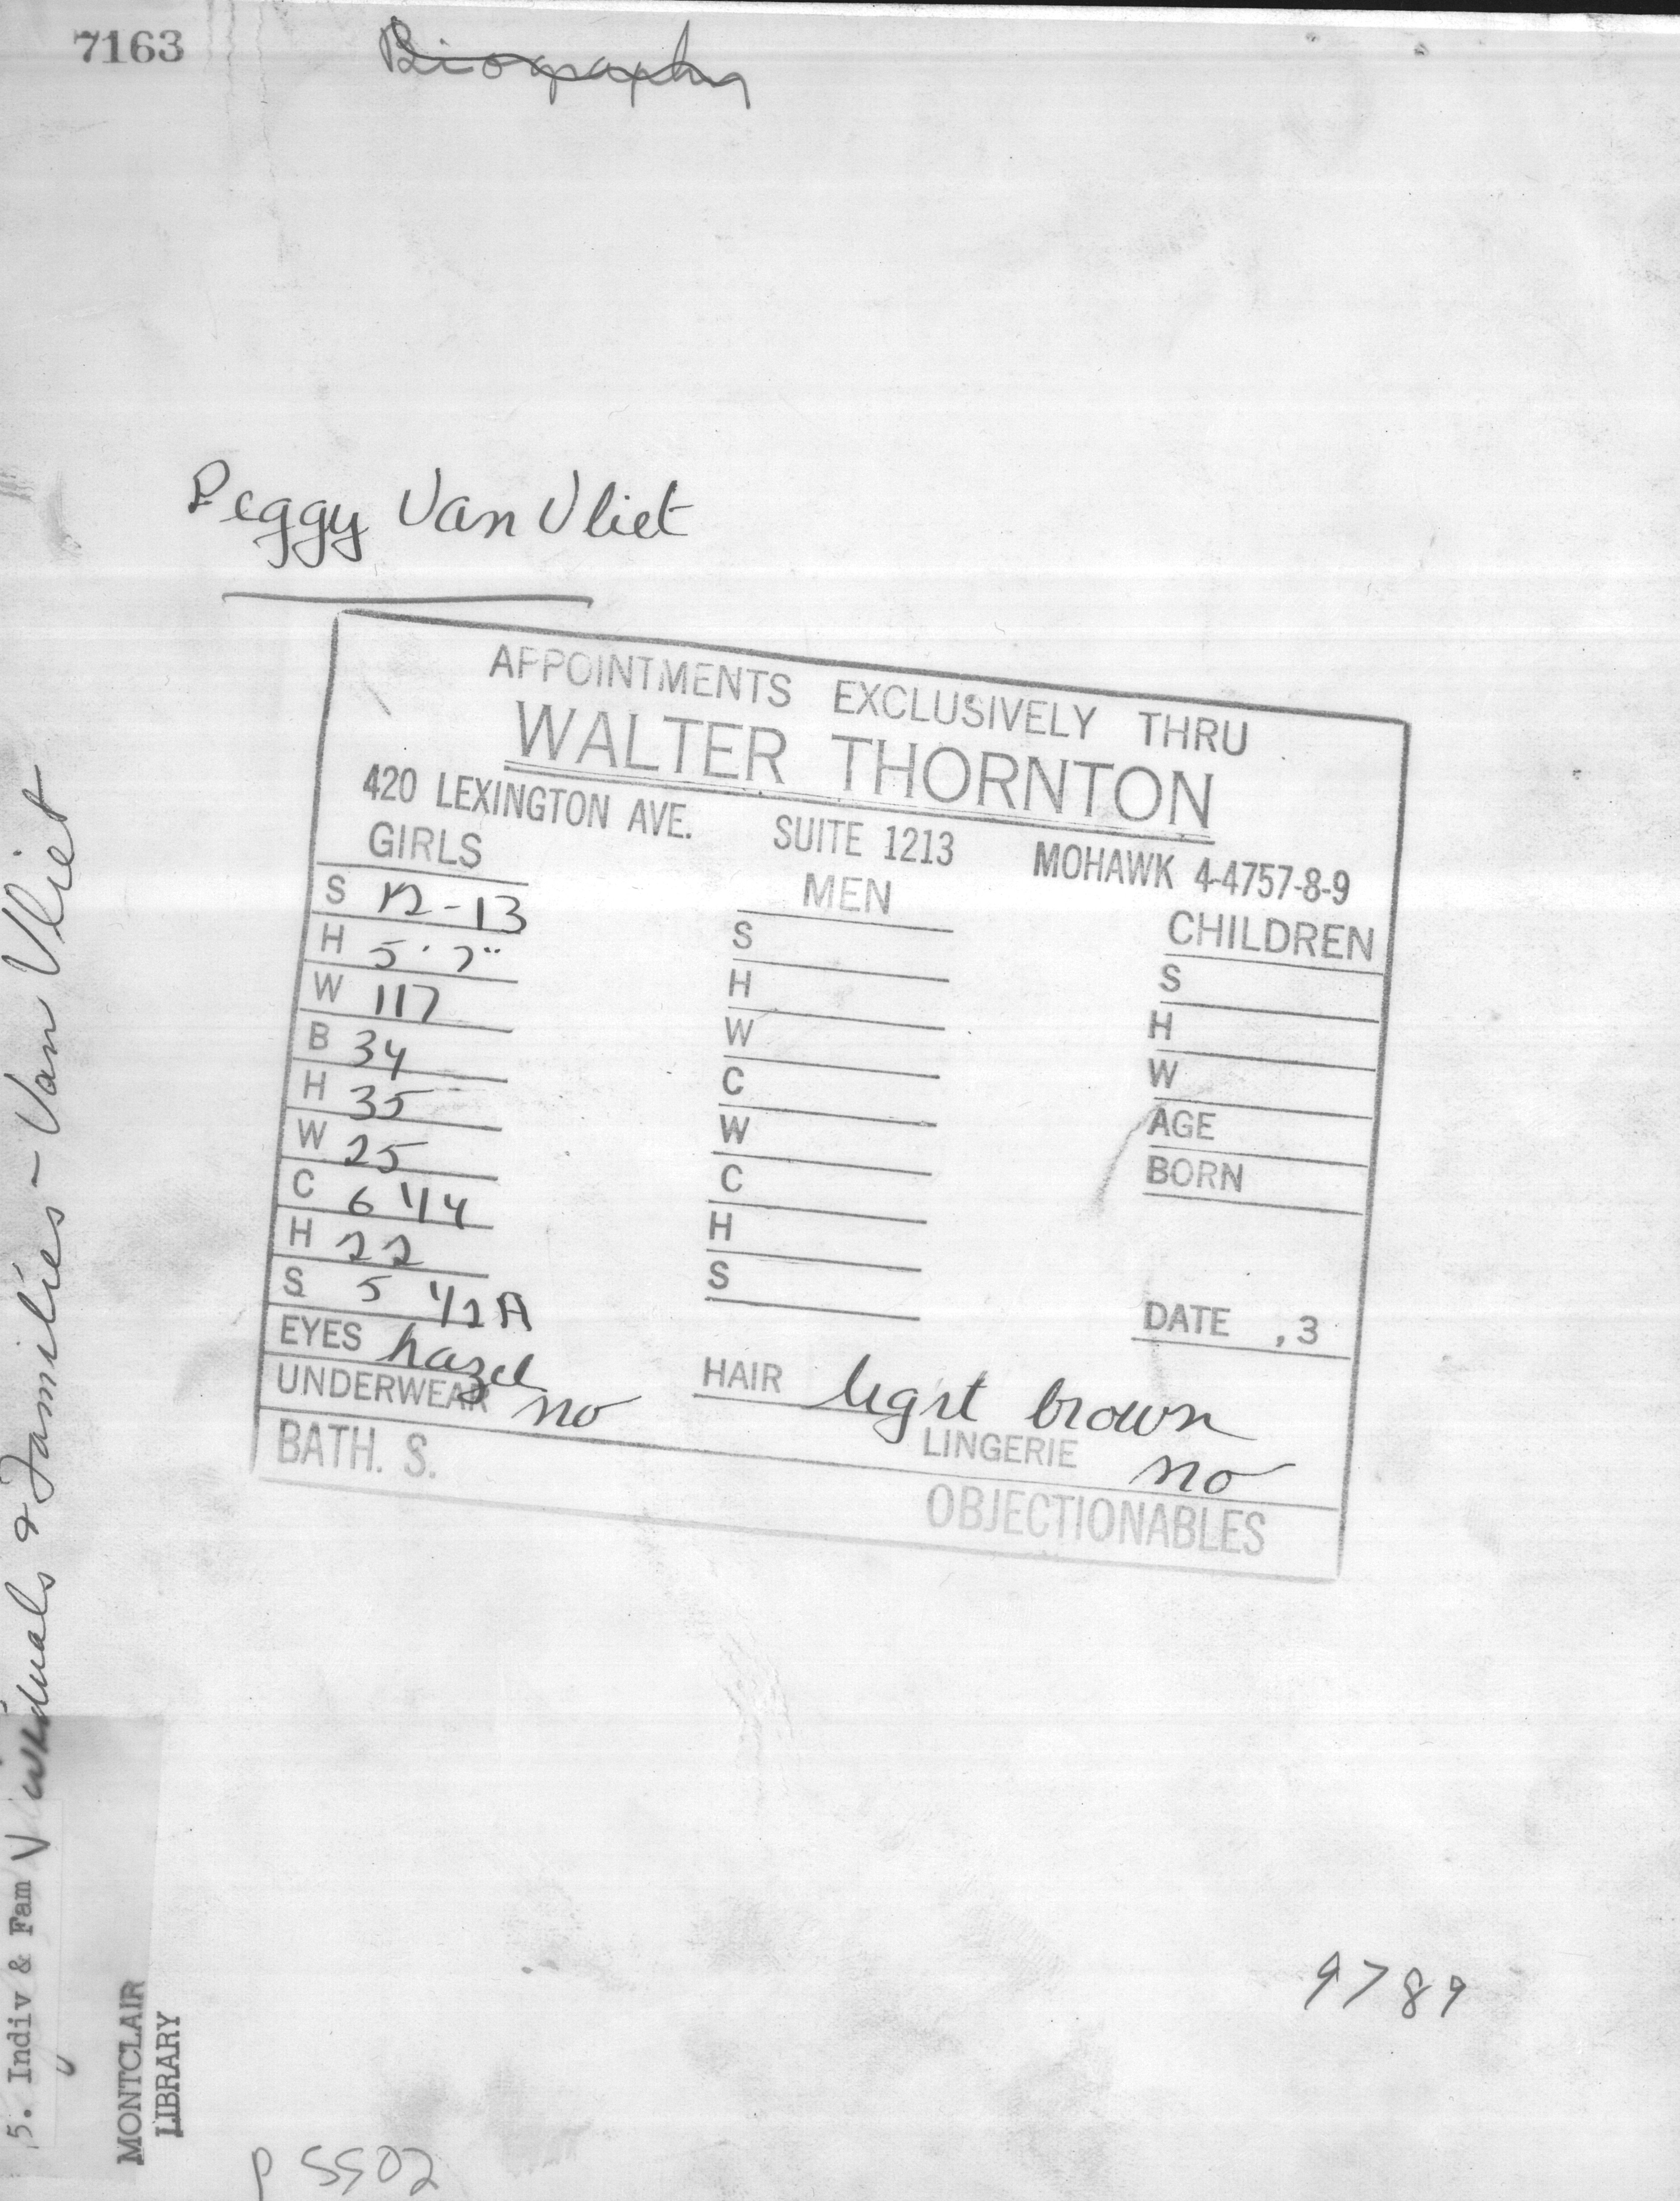 7163
Biography
Peggy Van Vliet
APPOINTMENTS EXCLUSIVELY THRU
WALTER THORNTON
420 LEXINGTON AVE. SUITE 1213 MOHAWK 4-4757-8-9
GIRLS
S 12-13
H 5'7"
W 117
B 34
H 35
W 25
C 6 1/4
H 22
S 5 1/2 A
EYES hazel
UNDERWEAR no
BATH. S.
MEN
S
H
W
C
W
C
H
S
HAIR light brown
LINGERIE no
OBJECTIONABLES
CHILDREN
S
H
W
AGE
BORN
DATE , 3
9789
5. Indiv & Fam V
Individuals & Families - Van Vliet
MONTCLAIR
LIBRARY